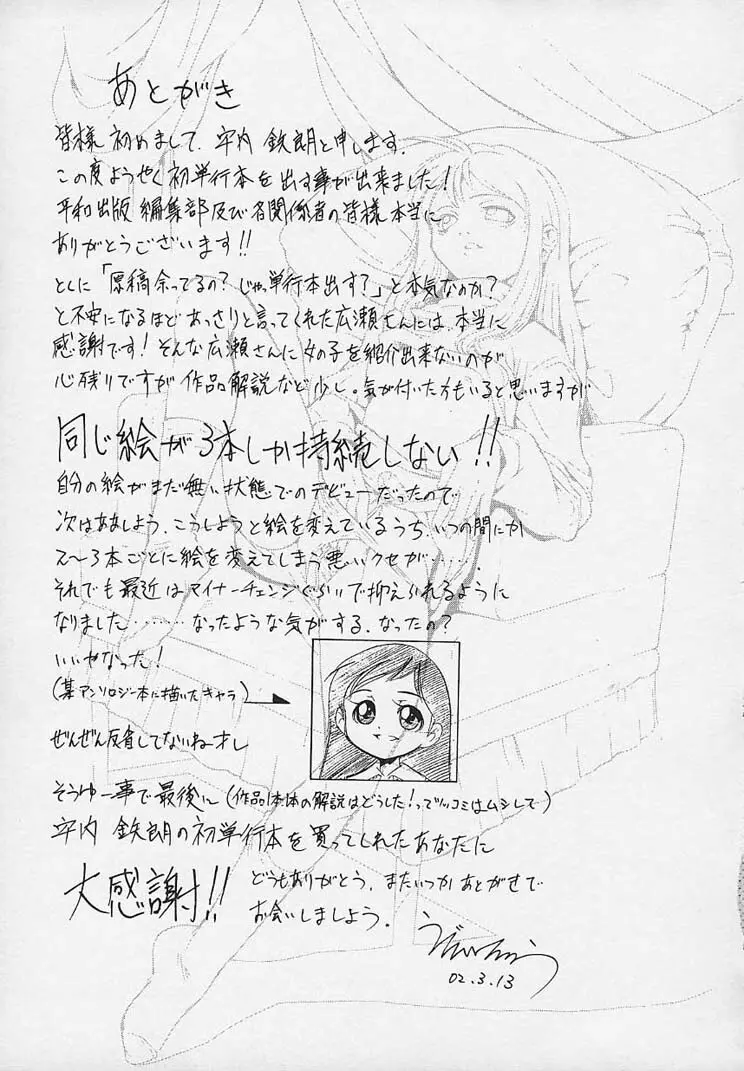 あとがき
皆様 初めまして、宇内 鉄朗と申します。
この度ようやく初単行本を出す事が出来ました!
平和出版 編集部及び各関係者の皆様 本当に
ありがとうございます!!
とくに「原稿余ってるの?じゃっ単行本出す?」と本気なのか?
と不安になるほどあっさりと言ってくれた広瀬さんには、本当に
感謝です!そんな広瀬さんに女の子を紹介出来ないのが
心残りですが作品解説など少し。気が付いた方もいると思いますが
同じ絵が3本しか持続しない!!
自分の絵がまだ無い状態でのデビューだったので…
次はああしよう、こうしようと絵を変えているうち、いつの間にか
2〜3本ごとに絵を変えてしまう悪いクセが………
それでも最近はマイナーチェンジぐらいで抑えられるように
なりました………なったような気がする、なったの?
いいやなった!
(某アンソロジー本に描いたキャラ)
ぜんぜん反省してないねオレ
そうゆー事で最後に(作品本体の解説はどうした!ってツッコミはムシして)
宇内 鉄朗の初単行本を買ってくれたあなたに
大感謝!!
どうもありがとう、またいつかあとがきで
お会いしましょう。
02.3.13